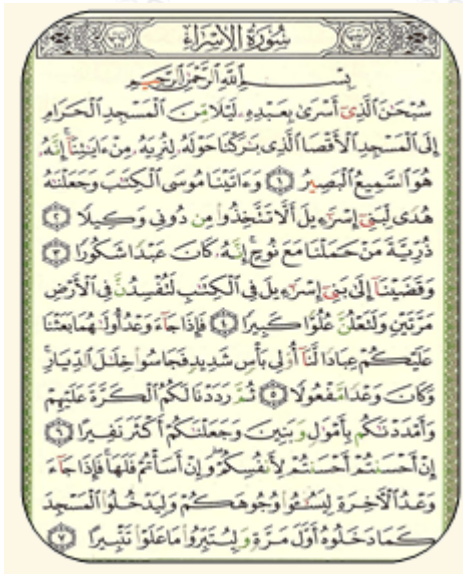 سُورَةُ الْإِسْرَاءِ
بِسْمِ ٱللَّهِ ٱلرَّحْمَٰنِ ٱلرَّحِيمِ
سُبْحَٰنَ ٱلَّذِىٓ أَسْرَىٰ بِعَبْدِهِۦ لَيْلًا مِّنَ ٱلْمَسْجِدِ ٱلْحَرَامِ
إِلَى ٱلْمَسْجِدِ ٱلْأَقْصَا ٱلَّذِى بَٰرَكْنَا حَوْلَهُۥ لِنُرِيَهُۥ مِنْ ءَايَٰتِنَآ ۚ إِنَّهُۥ
هُوَ ٱلسَّمِيعُ ٱلْبَصِيرُ ١ وَءَاتَيْنَا مُوسَى ٱلْكِتَٰبَ وَجَعَلْنَٰهُ
هُدًى لِّبَنِىٓ إِسْرَٰٓءِيلَ أَلَّا تَتَّخِذُوا۟ مِن دُونِى وَكِيلًا ٢
ذُرِّيَّةَ مَنْ حَمَلْنَا مَعَ نُوحٍ ۚ إِنَّهُۥ كَانَ عَبْدًا شَكُورًا ٣
وَقَضَيْنَآ إِلَىٰ بَنِىٓ إِسْرَٰٓءِيلَ فِى ٱلْكِتَٰبِ لَتُفْسِدُنَّ فِى ٱلْأَرْضِ
مَرَّتَيْنِ وَلَتَعْلُنَّ عُلُوًّا كَبِيرًا ٤ فَإِذَا جَآءَ وَعْدُ أُولَىٰهُمَا بَعَثْنَا
عَلَيْكُمْ عِبَادًا لَّنَآ أُو۟لِى بَأْسٍ شَدِيدٍ فَجَاسُوا۟ خِلَٰلَ ٱلدِّيَارِ ۚ
وَكَانَ وَعْدًا مَّفْعُولًا ٥ ثُمَّ رَدَدْنَا لَكُمُ ٱلْكَرَّةَ عَلَيْهِمْ
وَأَمْدَدْنَٰكُم بِأَمْوَٰلٍ وَبَنِينَ وَجَعَلْنَٰكُمْ أَكْثَرَ نَفِيرًا ٦
إِنْ أَحْسَنتُمْ أَحْسَنتُمْ لِأَنفُسِكُمْ ۖ وَإِنْ أَسَأْتُمْ فَلَهَا ۚ فَإِذَا جَآءَ
وَعْدُ ٱلْءَاخِرَةِ لِيَسُۥٓـُٔوا۟ وُجُوهَكُمْ وَلِيَدْخُلُوا۟ ٱلْمَسْجِدَ
كَمَا دَخَلُوهُ أَوَّلَ مَرَّةٍ وَلِيُتَبِّرُوا۟ مَا عَلَوْا۟ تَتْبِيرًا ٧